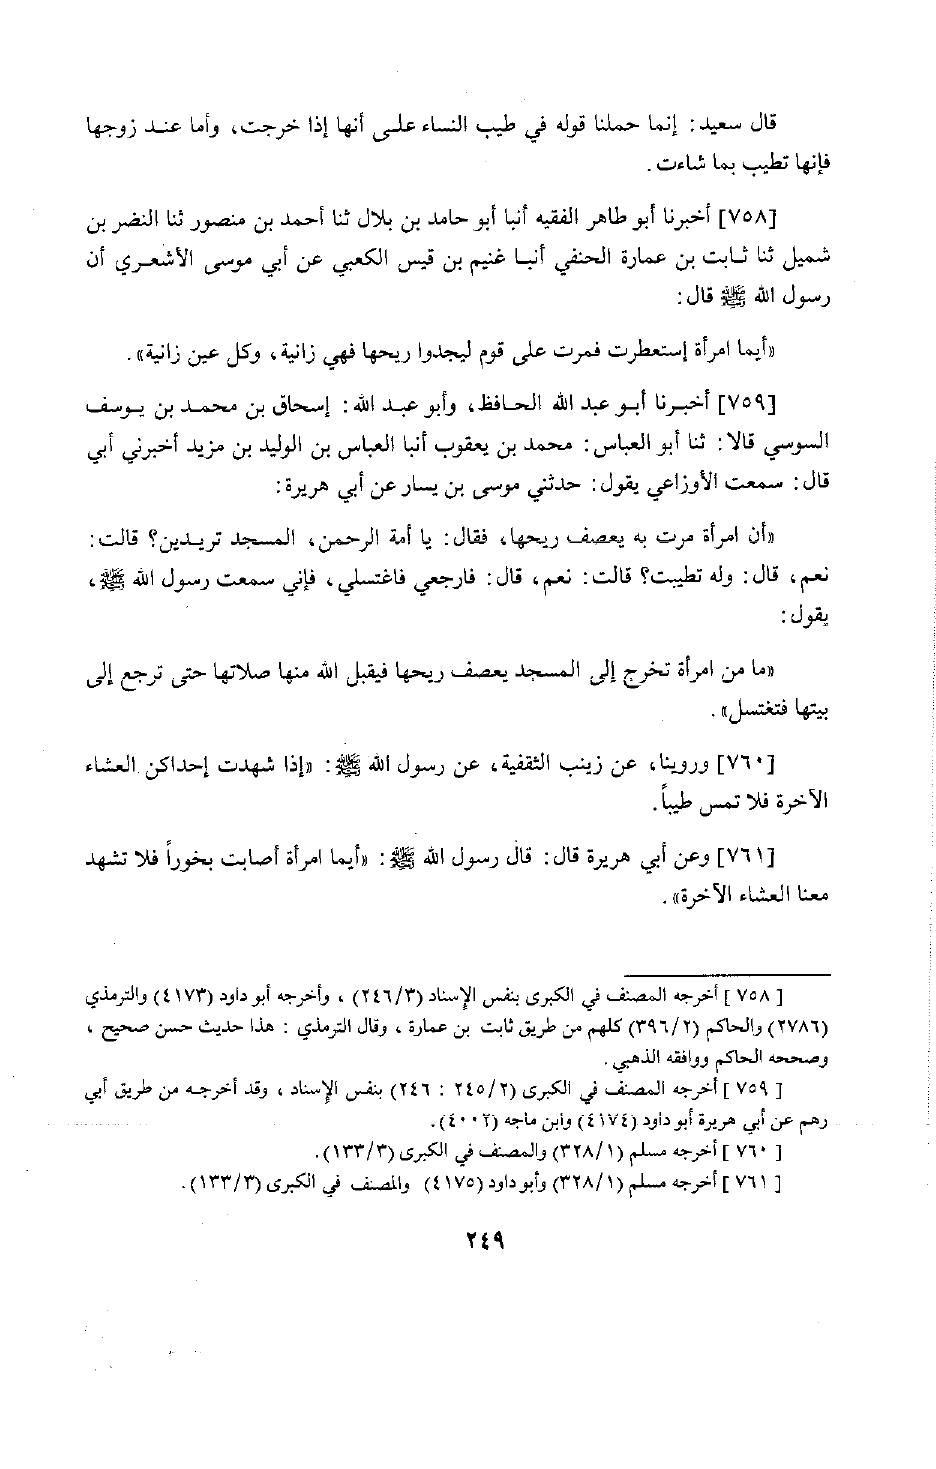 قال سعيد: إنما حملنا قوله في طيب النساء على أنها إذا خرجت، وأما عند زوجها
فإنها تطيب بما شاءت.
[٧٥٨] أخبرنا أبو طاهر الفقيه أنبا أبو حامد بن بلال ثنا أحمد بن منصور ثنا النضر بن
شميل ثنا ثابت بن عمارة الحنفي أنبا غنيم بن قيس الكعبي عن أبي موسى الأشعري أن
رسول الله ﷺ قال:
«أيما امرأة إستعطرت فمرت على قوم ليجدوا ريحها فهي زانية، وكل عين زانية».
[٧٥٩] أخبرنا أبو عبد الله الحافظ، وأبو عبد الله: إسحاق بن محمد بن يوسف
السوسي قالا: ثنا أبو العباس: محمد بن يعقوب أنبا العباس بن الوليد بن مزيد أخبرني أبي
قال: سمعت الأوزاعي يقول: حدثني موسى بن يسار عن أبي هريرة:
«أن امرأة مرت به يعصف ريحها، فقال: يا أمة الرحمن، المسجد تريدين؟ قالت:
نعم، قال: وله تطيبت؟ قالت: نعم، قال: فارجعي فاغتسلي، فإني سمعت رسول الله ﷺ،
يقول:
«ما من امرأة تخرج إلى المسجد يعصف ريحها فيقبل الله منها صلاتها حتى ترجع إلى
بيتها فتغتسل».
[٧٦٠] وروينا، عن زينب الثقفية، عن رسول الله ﷺ: «إذا شهدت إحداكن العشاء
الآخرة فلا تمس طيباً.
[٧٦١] وعن أبي هريرة قال: قال رسول الله ﷺ: «أيما امرأة أصابت بخوراً فلا تشهد
معنا العشاء الآخرة».
[٧٥٨] أخرجه المصنف في الكبرى بنفس الإسناد (٢٤٦/٣)، وأخرجه أبو داود (٤١٧٣) والترمذي
(٢٧٨٦) والحاكم (٣٩٦/٢) كلهم من طريق ثابت بن عمارة، وقال الترمذي: هذا حديث حسن صحيح،
وصححه الحاكم ووافقه الذهبي.
[٧٥٩] أخرجه المصنف في الكبرى (٢٤٥/٢ : ٢٤٦) بنفس الإسناد، وقد أخرجه من طريق أبي
رهم عن أبي هريرة أبو داود (٤١٧٤) وابن ماجه (٤٠٠٢).
[٧٦٠] أخرجه مسلم (٣٢٨/١) والمصنف في الكبرى (١٣٣/٣).
[٧٦١] أخرجه مسلم (٣٢٨/١) وأبو داود (٤١٧٥) والمصنف في الكبرى (١٣٣/٣).
٢٤٩